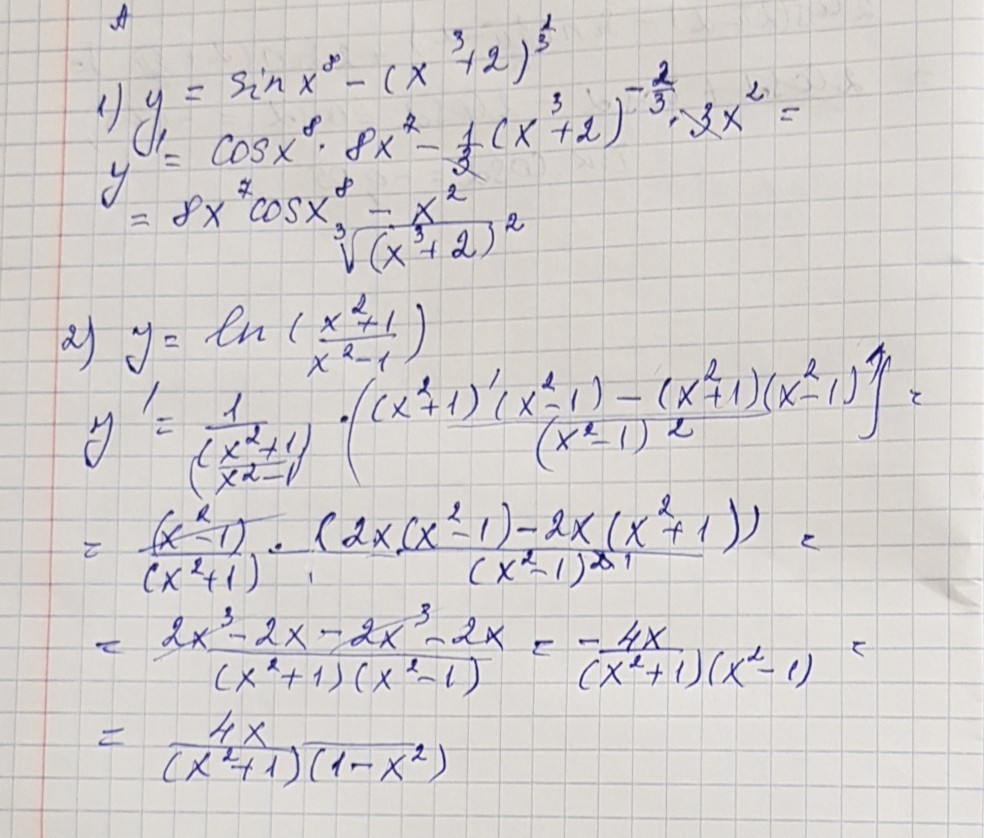 A
1) y = sin x⁸ - (x³+2)^(1/3)
y' = cos x⁸ · 8x⁷ - 1/3 (x³+2)^(-2/3) · 3x² =
= 8x⁷ cos x⁸ - x²/∛(x³+2)²
2) y = ln ((x²+1)/(x²-1))
y' = 1/((x²+1)/(x²-1)) · ((x²+1)'(x²-1) - (x²+1)(x²-1)')/(x²-1)² =
= (x²-1)/(x²+1) · (2x(x²-1) - 2x(x²+1))/(x²-1)² =
= (2x³ - 2x - 2x³ - 2x)/((x²+1)(x²-1)) = -4x/((x²+1)(x²-1)) =
= 4x/((x²+1)(1-x²))